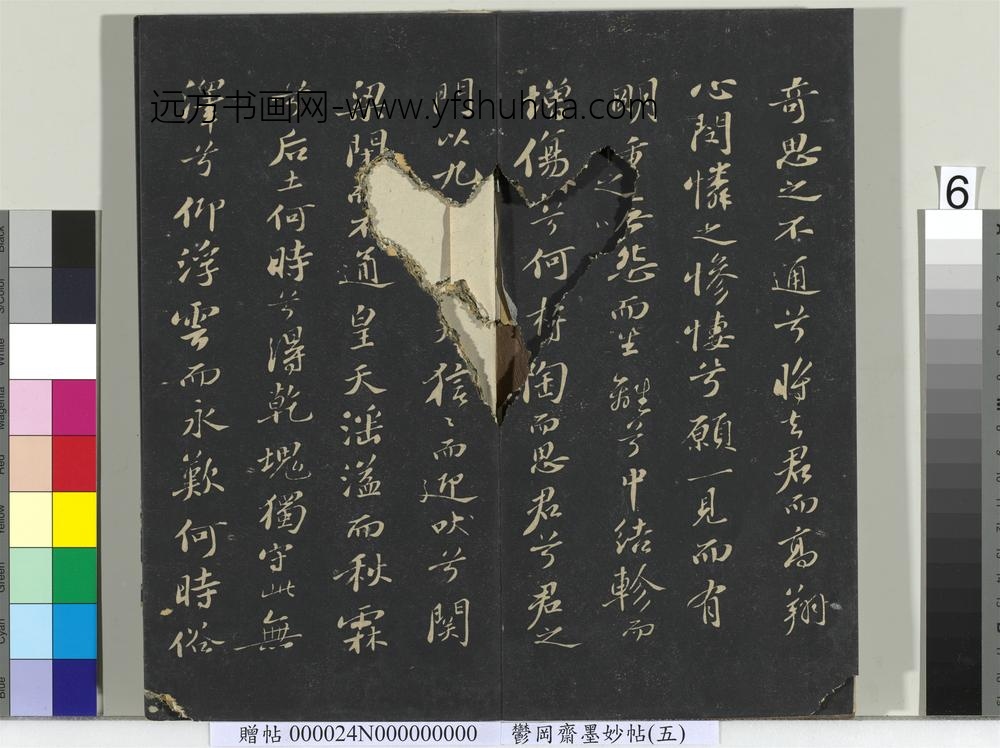 远方书画网-www.yfshuhua.com
奇思之不通兮將去君而高翔
心閔憐之慘悽兮願一見而有
明重無怨而生離兮中結軫而
增傷何陶而思君兮君之
門以九狺〻而迎吠兮關
梁閉不通皇天淫溢而秋霖
兮后土何時兮得乾塊獨守此無
澤兮仰浮雲而永歎何時俗
6
贈帖 000024N000000000 鬱岡齋墨妙帖(五)
Black
3/Color
White
Magenta
Red
Yellow
Green
Cyan
Blue